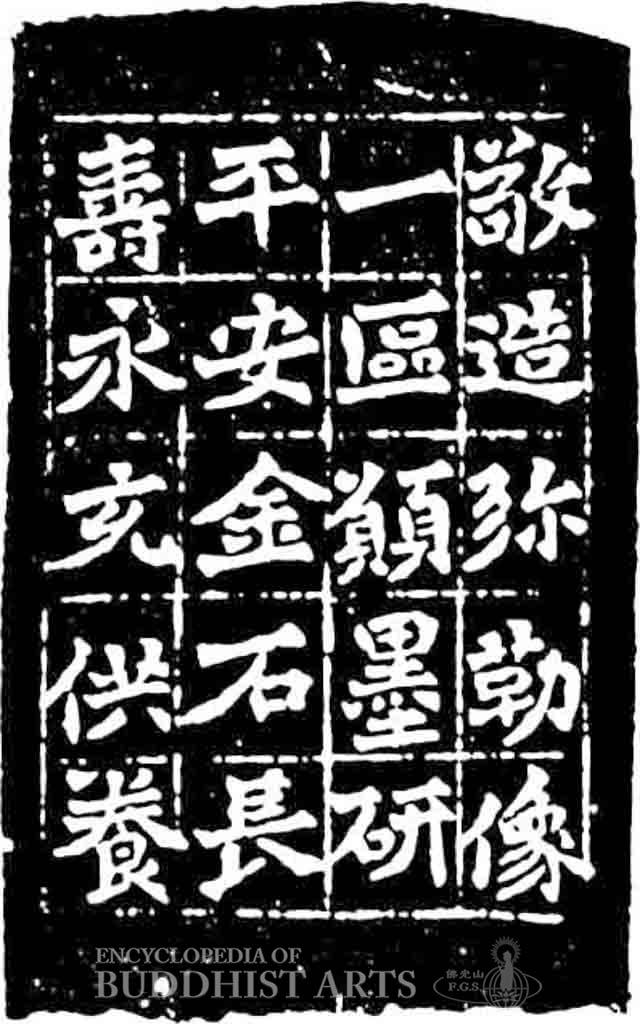 敬造弥勒像
一區願墨研
平安金石長
壽永充供養
ENCYCLOPEDIA OF
BUDDHIST ARTS
佛光山
F.G.S.